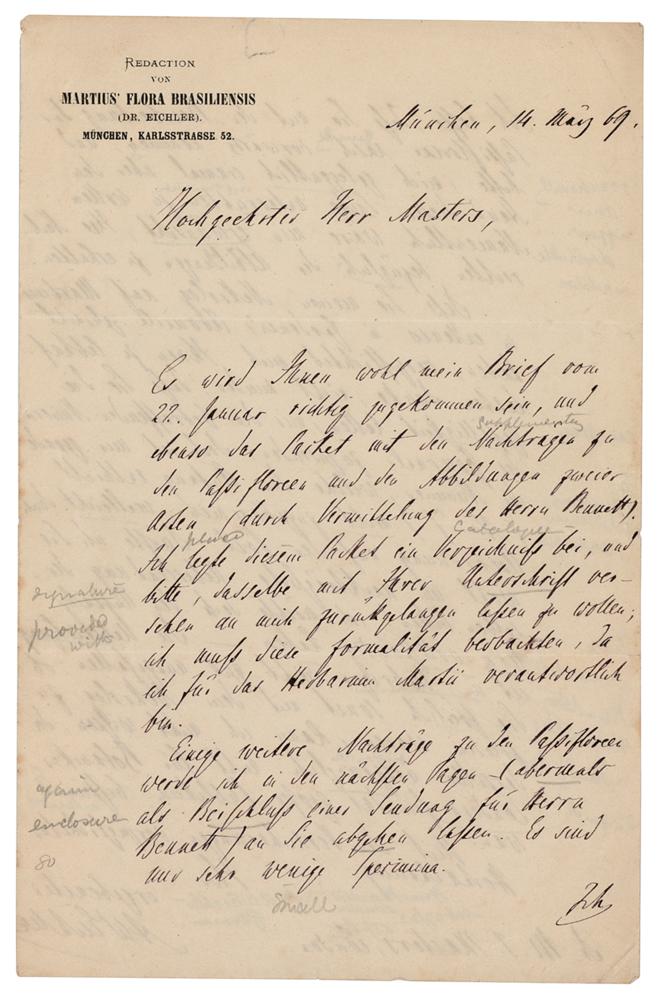 REDACTION
VON
MARTIUS' FLORA BRASILIENSIS
(DR. EICHLER).
MÜNCHEN, KARLSSTRASSE 52.
München, 14. März 69.
Hochgeehrter Herr Masters,
Es wird Ihnen wohl mein Brief vom
22. Januar richtig zugekommen sein, und
supplementary
ebenso das Packet mit den Nachträgen zu
den Passifloreen und den Abbildungen zweier
Arten (durch Vermittelung des Herrn Bennett).
placed
Catalogue
Ich legte diesem Packet ein Verzeichniss bei, und
bitte, dasselbe mit Ihrer Unterschrift ver-
signature
sehen an mich zurückgelangen lassen zu wollen;
provide
with
ich muss diese Formalität beobachten, da
ich für das Herbarium Martii verantwortlich
bin.
Einige weitere Nachträge zu den Passifloreen
werde ich in den nächsten Tagen (abermals
again
als Beischluss einer Sendung für Herrn
enclosure
Bennett) an Sie abgehen lassen. Es sind
80
nur sehr wenige Specimina.
small
Ich